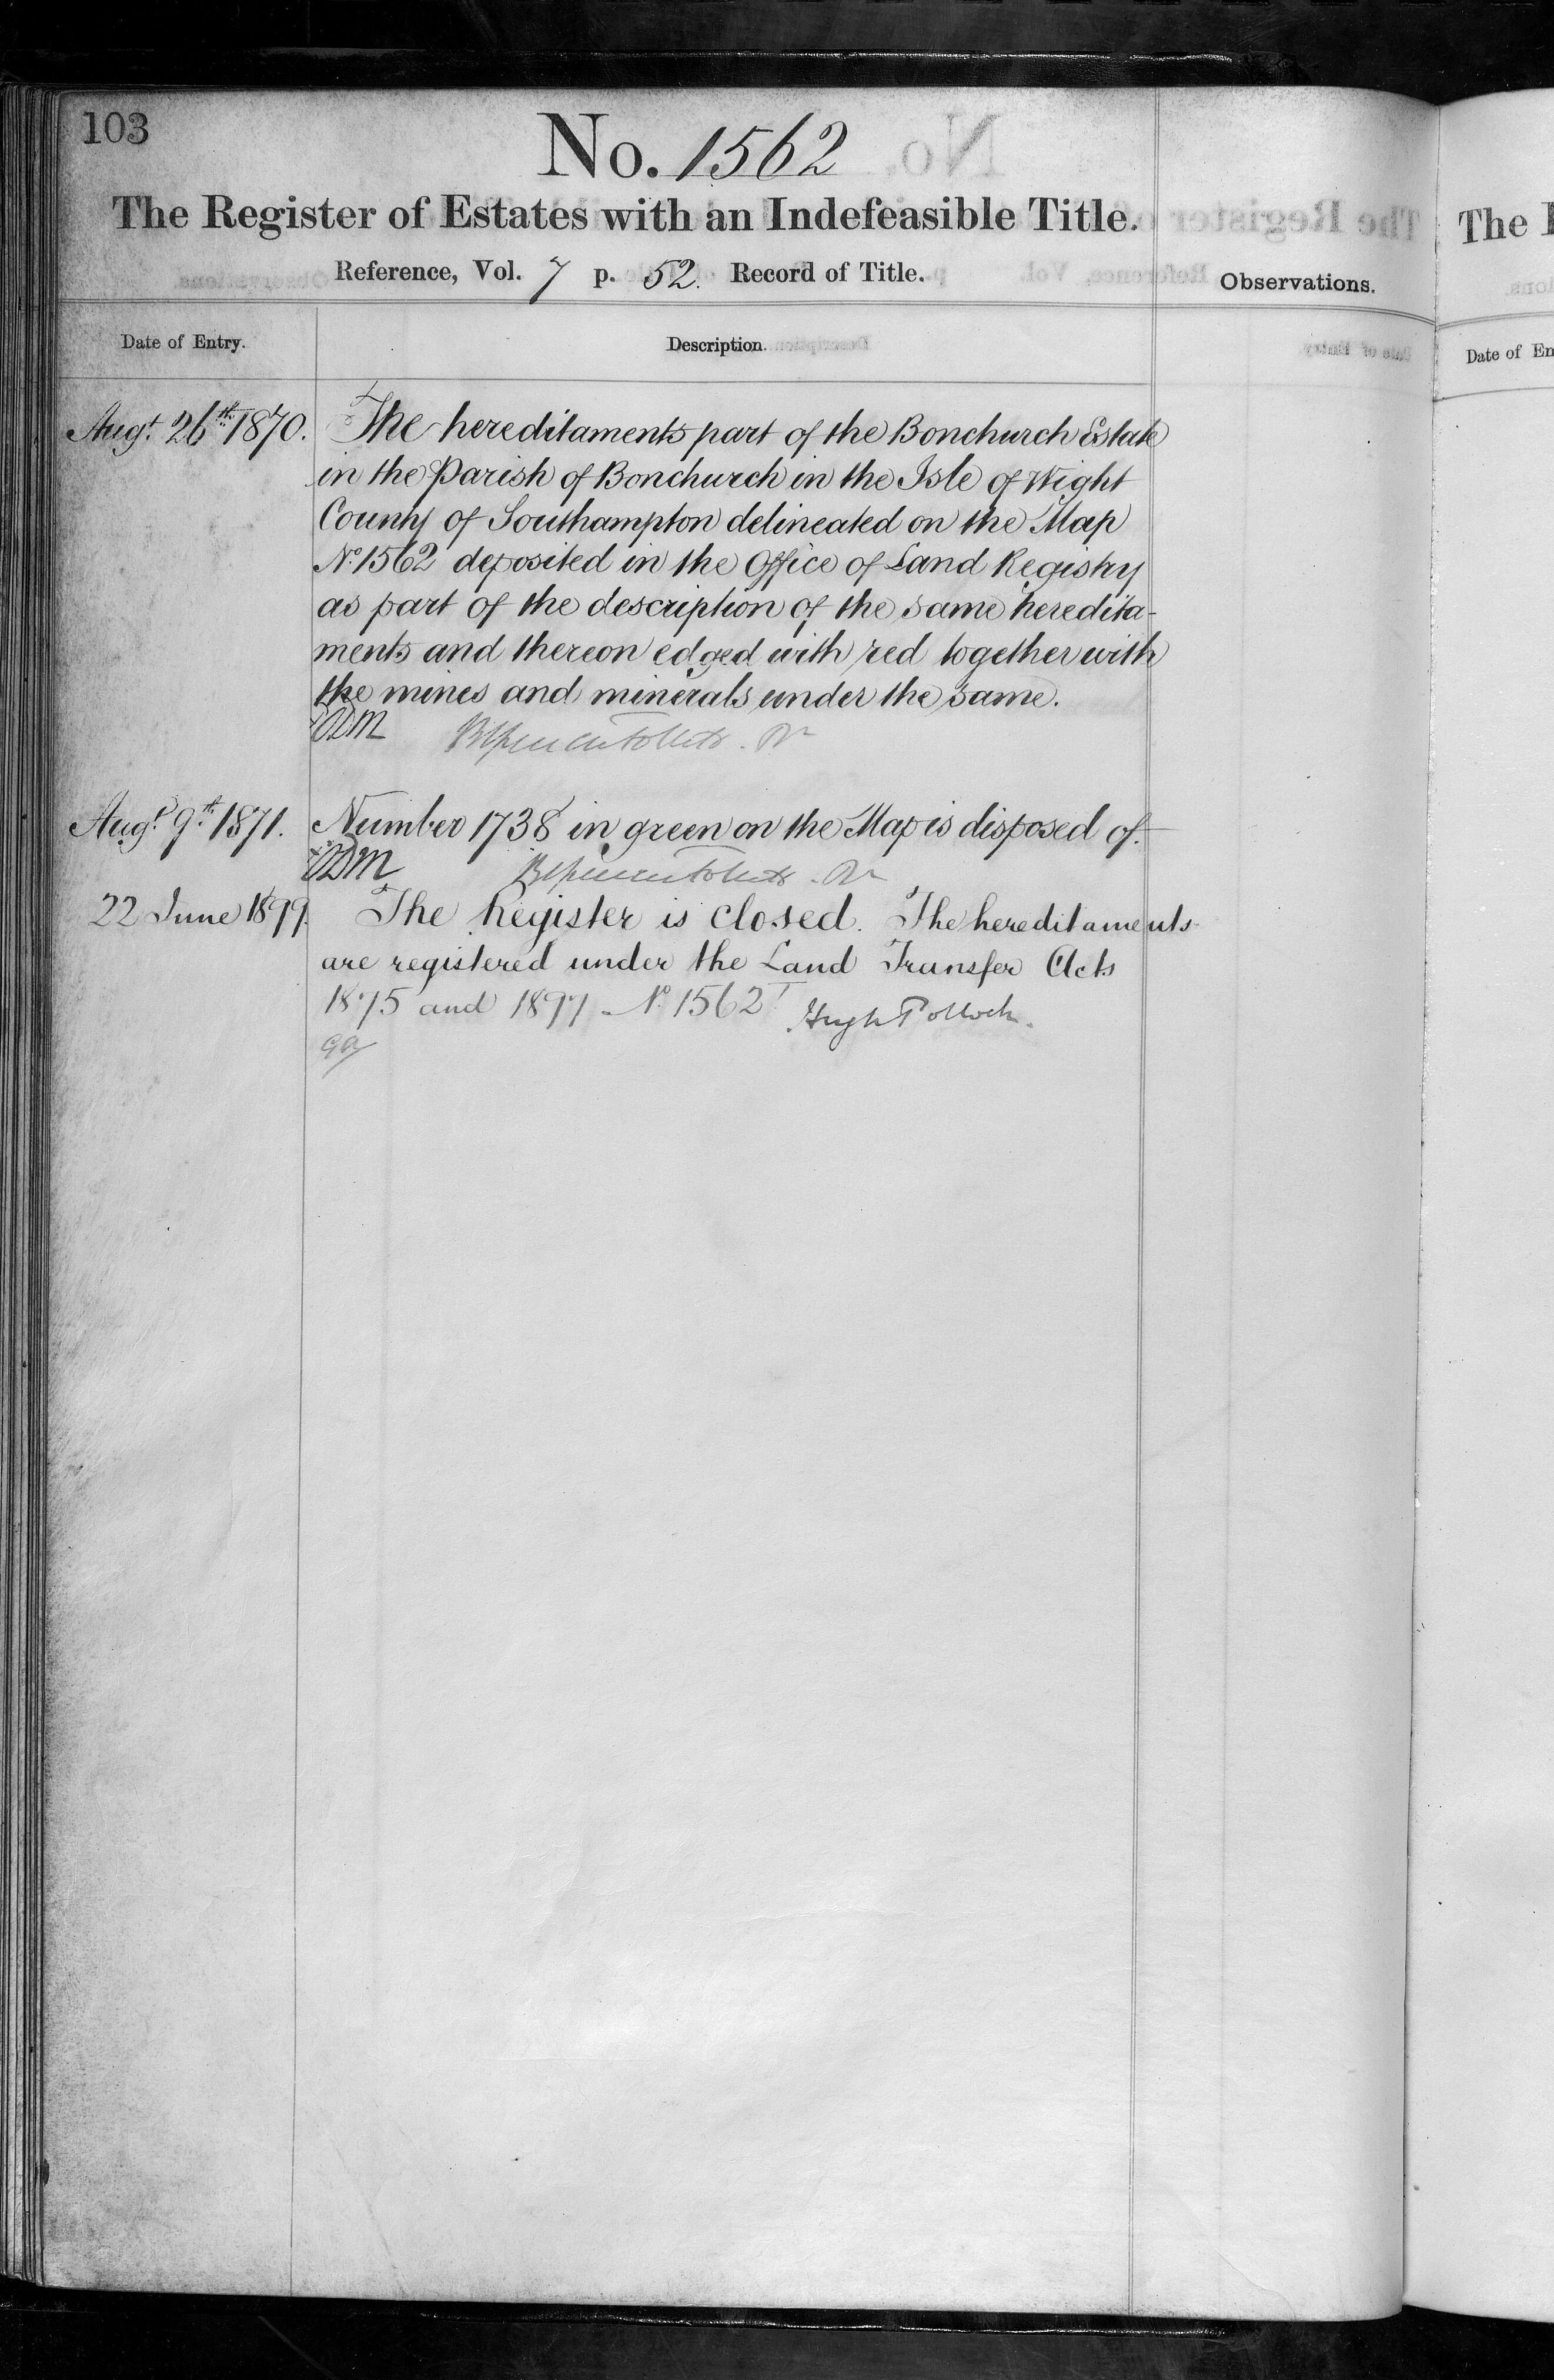 103
No. 1562
The Register of Estates with an Indefeasible Title.
Reference, Vol. 7 p. 52. Record of Title.
Observations.
Date of Entry.
Description.
Augt. 26th 1870.
The hereditaments part of the Bonchurch Estate
in the Parish of Bonchurch in the Isle of Wight
County of Southampton delineated on the Map
No. 1562 deposited in the Office of Land Registry
as part of the description of the same heredita-
ments and thereon edged with red together with
the mines and minerals under the same.
Augt. 9th 1871.
Number 1738 in green on the Map is disposed of.
22 June 1899.
The Register is closed. The hereditaments
are registered under the Land Transfer Acts
1875 and 1897 - No. 1562 Hugh Pollock.
The
Date of En